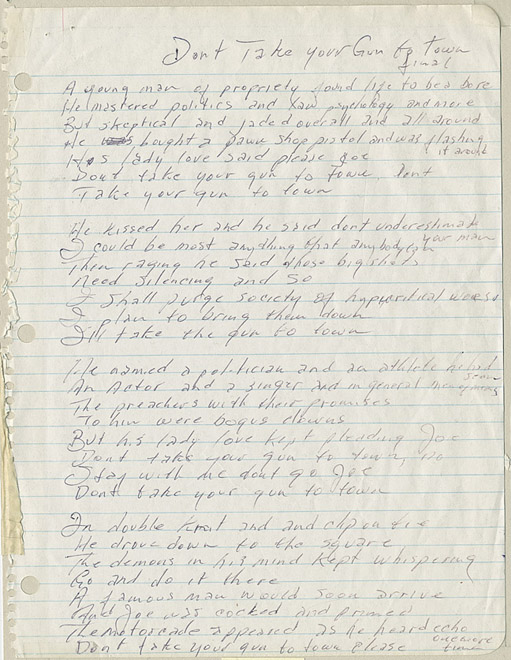 Dont Take your Gun to Town
final
A young man of propriety found life to be a bore
He mastered politics and law psychology and more
But skeptical and jaded overall and all around
He bought a pawn shop pistol and was flashing it around
His lady love said please Joe
Dont take your gun to town, dont
Take your gun to town
He kissed her and he said dont underestimate your man
I could be most anything that anybody can
Then raging he said those big shots
Need silencing and so
I shall purge society of hypocritical
I plan to bring them down
Ill take the gun to town
He named a politician and an athlete he had seen
An Actor and a singer and in general
The preachers with their promises
To him were bogus clowns
But his lady love kept pleading Joe
Dont take your gun to town, no
Stay with me dont go Joe
Dont take your gun to town
In double knit and and clip on tie
He drove down to the square
The demons in his mind kept whispering
Go and do it there
A famous man would soon arrive
And Joe was cocked and primed
The motorcade appeared as he heard echo one more time
Dont take your gun to town please